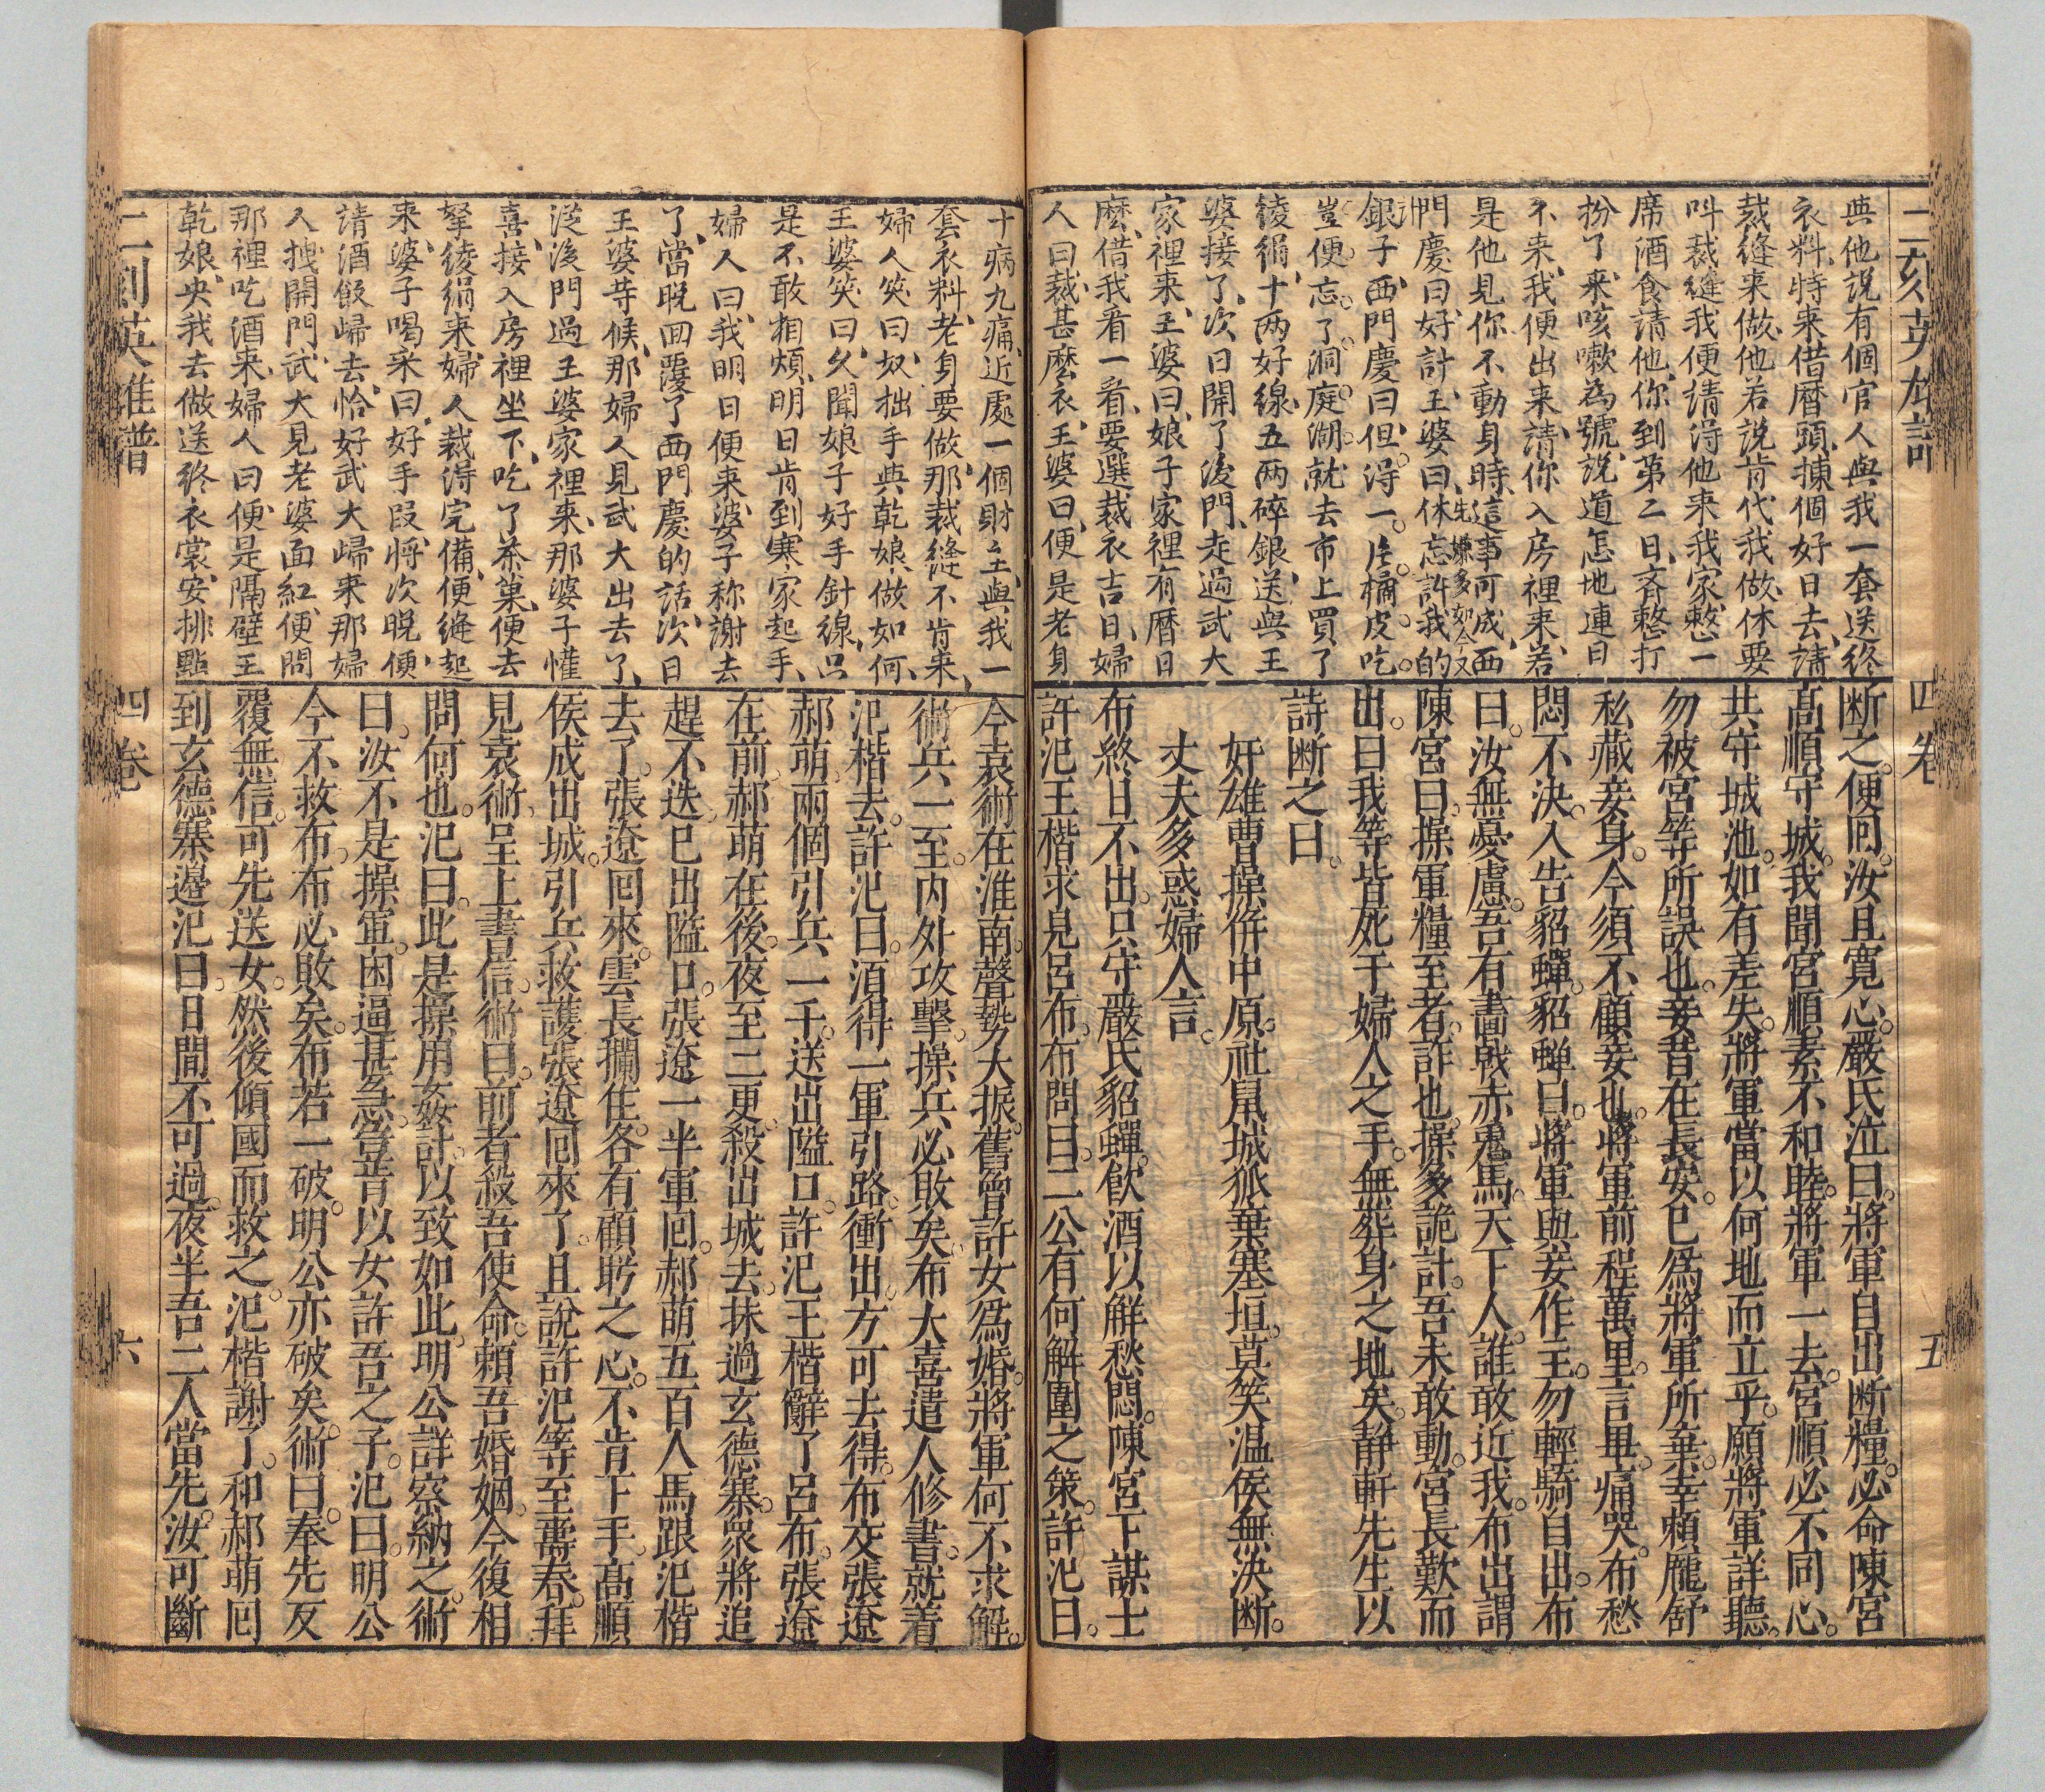 二刻英雄譜
四卷
五
與他說有個官人與我一套送終
衣料、特来借曆頭、揀個好日去、請
裁縫来做、他若說肯代我做、休要
叫裁縫、我便請淂他来我家、整一
席酒食請他、你到第二日、齐整打
扮了来、咳嗽為號、說道怎地連日
不来、我便出来、請你入房裡来、若
是他見你不動身時、這事可成、西
門慶曰、好計、王婆曰、休忘許我的
先嫌多如今又
銀子、西門慶曰、但淂一片橘皮吃
豈便忘了洞庭湖、就去市上買了
綾絹、十两好線、五两碎銀、送與王
婆接了、次日開了後門、走過武大
家裡来、王婆曰、娘子家裡有曆日
麽、借我看一看、要選裁衣吉日、婦
人曰、裁甚麽衣、王婆曰、便是老身
断之。便囘。汝且寬心。嚴氏泣曰。將軍自出断糧。必命陳宮
高順守城。我聞宮順素不和睦。將軍一去。宮順必不同心。
共守城池。如有差失。將軍當以何地而立乎。願將軍詳聽。
勿被宮等所誤也。妾昔在長安。巳爲將軍所棄。幸賴龐舒
私藏妾身。今須不顧妾也。將軍前程萬里。言畢。痛哭。布愁
悶不決。入告貂蟬。貂蟬曰。將軍與妾作主。勿輕騎自出。布
曰。汝無憂慮。吾有畵戟赤兎馬。天下人。誰敢近我。布出謂
陳宮曰。操軍糧至者。詐也。操多詭計。吾未敢動。宮長歎而
出。曰我等皆死于婦人之手。無葬身之地矣。靜軒先生以
詩断之曰。
奸雄曹操併中原。社鼠城狐棄塞垣。莫笑温侯無決断。
丈夫多惑婦人言。
布終日不出。只守嚴氏貂蟬。飲酒以解愁悶。陳宮下謀士
許汜王楷求見呂布。布問曰。二公有何解圍之策。許汜曰。
十病九痛、近處一個財主、與我一
套衣料、老身要做、那裁縫不肯来、
婦人笑曰、奴拙手與乾娘做如何、
王婆笑曰、久聞娘子好手針線、只
是不敢相煩、明日肯到寒家起手、
婦人曰、我明日便来、婆子称謝去
了、當晚回覆了西門慶的話、次日
王婆苛候、那婦人見武大出去了、
從後門過王婆家裡来、那婆子懽
喜、接入房裡坐下、吃了茶菓、便去
拏綾絹来、婦人裁淂完備、便縫起
来、婆子喝采曰、好手段、將次晚便
請酒飯歸去、恰好武大歸来、那婦
人拽開門、武大見老婆面紅、便問
那裡吃酒来、婦人曰、便是隔壁王
乾娘、央我去做送終衣裳、安排點
今袁術在淮南。聲勢大振。舊曾許女為婚。將軍何不求解。
術兵一至。内外攻擊。操兵必敗矣。布大喜。遣人修書。就着
汜楷去。許汜曰。須得一軍引路。衝出。方可去得。布交張遼
郝萌兩個引兵一千。送出隘口。許汜王楷辭了呂布。張遼
在前。郝萌在後。夜至二更。殺出城去。抹過玄德寨。眾將追
趕不迭。巳出隘口。張遼一半軍囘。郝萌五百人馬跟汜楷
去了。張遼囘來。雲長攔住。各有顧盻之心。不肯下手。高順
侯成出城。引兵救護。張遼囘來了。且說許汜等至壽春。拜
見袁術。呈上書信。術曰。前者殺吾使命。賴吾婚姻。今復相
問何也。汜曰。此是操用姦計。以致如此。明公詳察納之。術
曰。汝不是操軍。困逼甚急。豈肯以女許吾之子。汜曰。明公
今不救布。布必敗矣。布若一破。明公亦破矣。術曰。奉先反
覆無信。可先送女。然後傾國而救之。汜楷謝了。和郝萌囘
到玄德寨邉。汜曰。日間不可過。夜半吾二人當先。汝可斷
二刻英雄譜
四卷
六